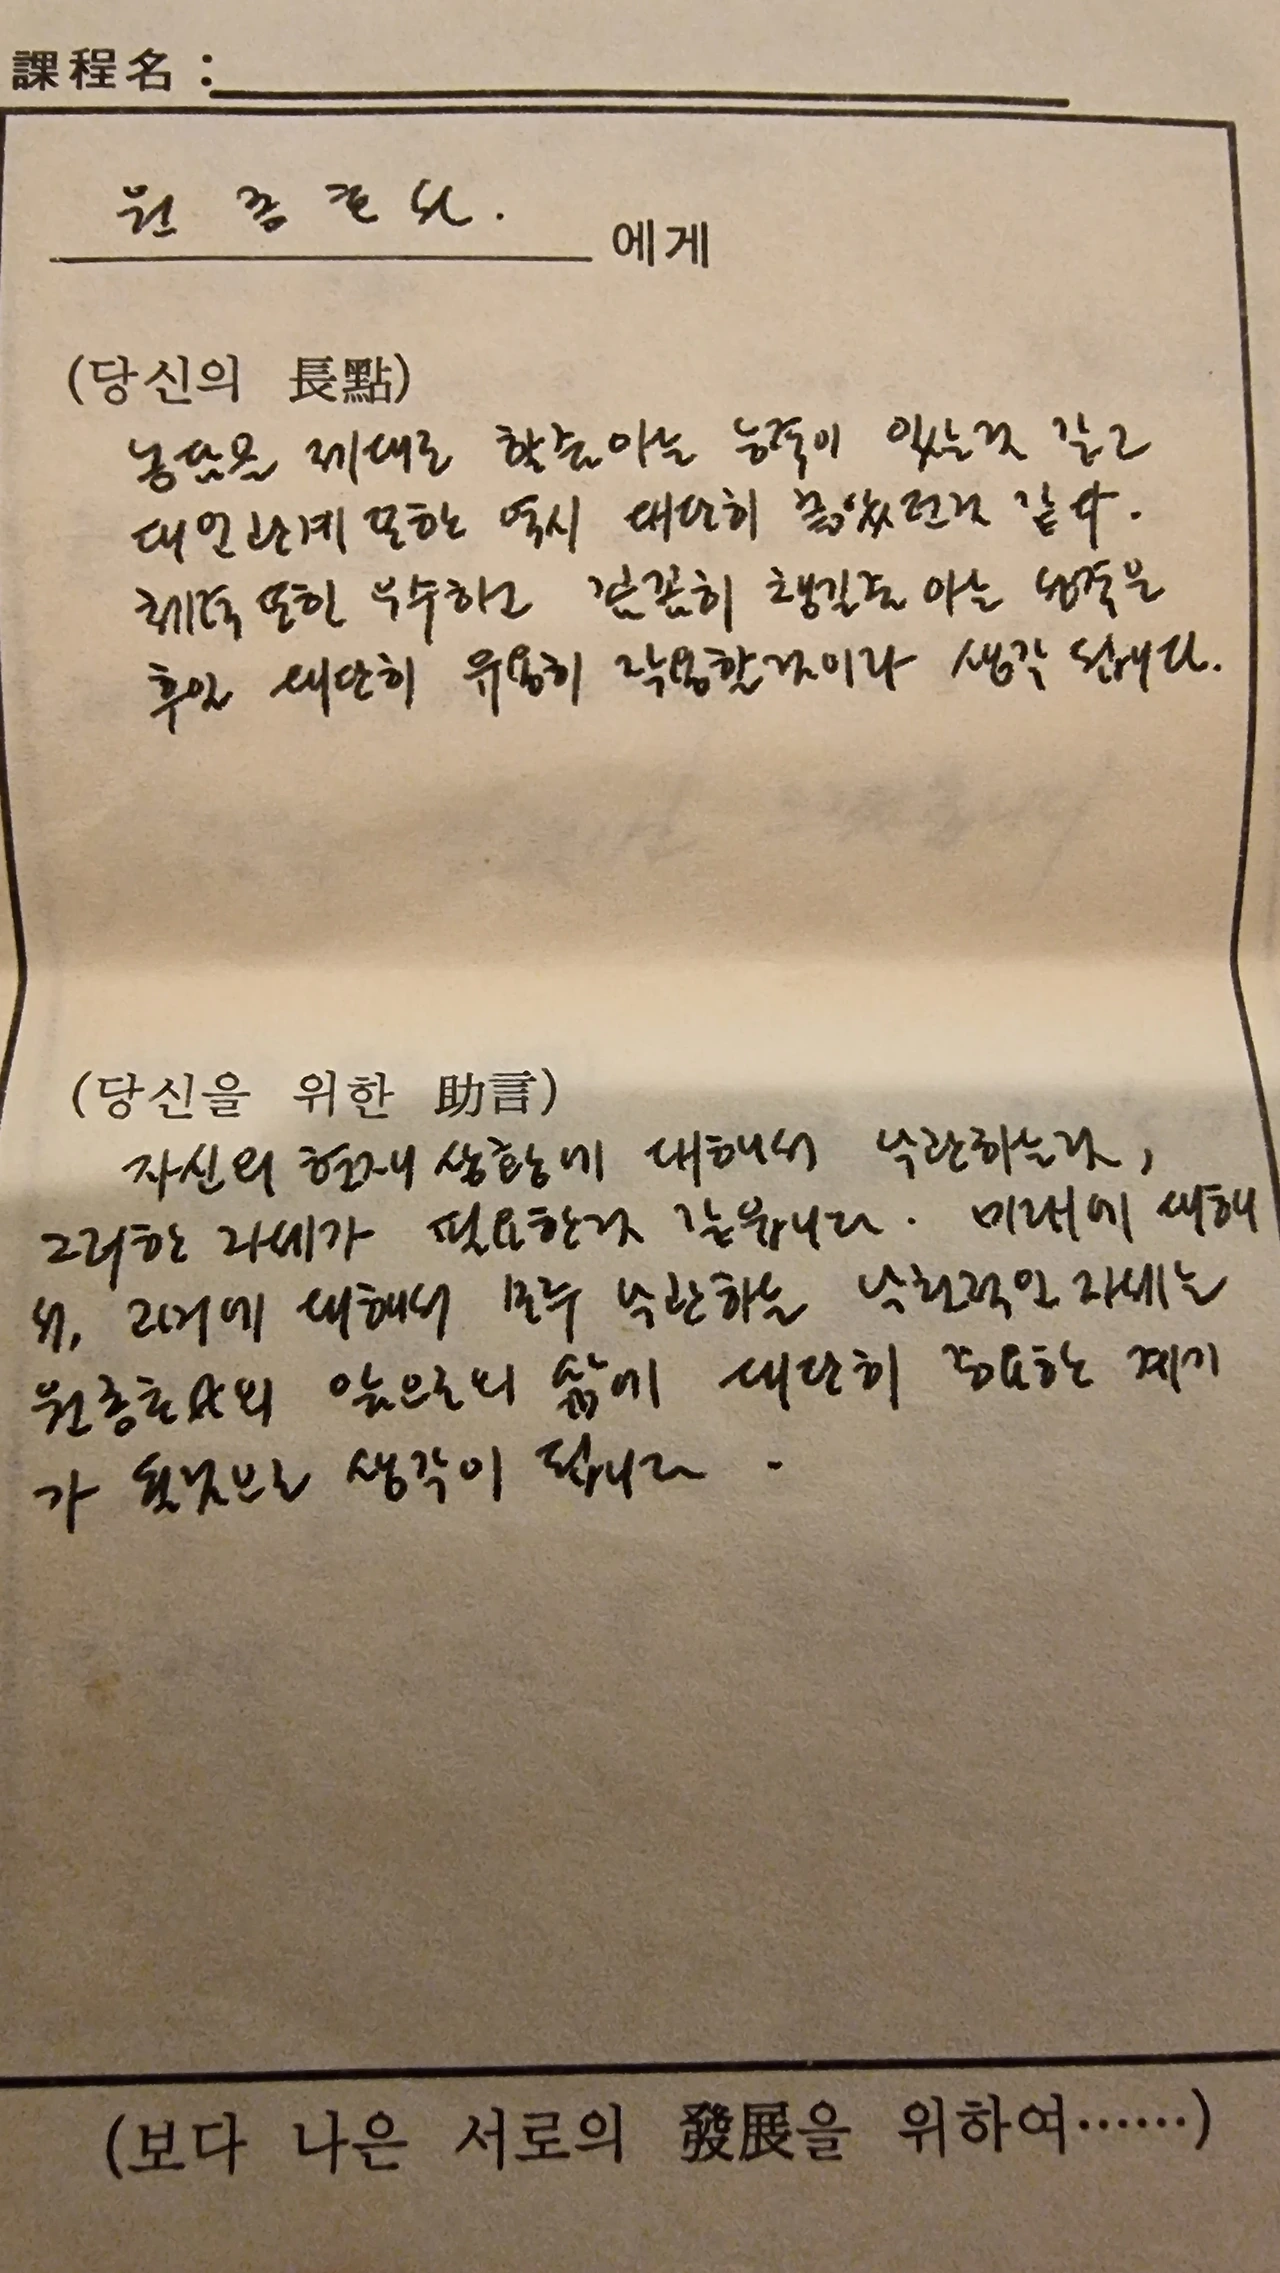 課程名 :
원 종 호 씨. 에게
(당신의 長點)
농담을 제대로 할줄아는 능력이 있는것 같고
대인관계 또한 역시 대단히 좋았던것 같다.
체력 또한 우수하고 꼼꼼히 챙길줄 아는 능력은
후일 대단히 유용히 작용할것이라 생각 됩니다.
(당신을 위한 助言)
자신의 현재 상황에 대해서 낙관하는것,
그러한 자세가 필요한것 같읍니다. 미래에 대해
서, 과거에 대해서 모두 낙관하는 낙천적인 자세는
원종호씨의 앞으로의 삶에 대단히 중요한 계기
가 될것으로 생각이 됩니다.
(보다 나은 서로의 發展을 위하여……)